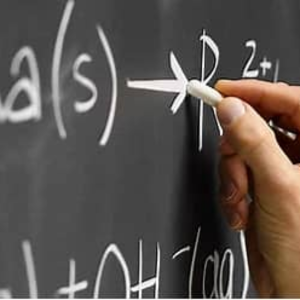 a(s) → R 2+
) + OH⁻(aq)